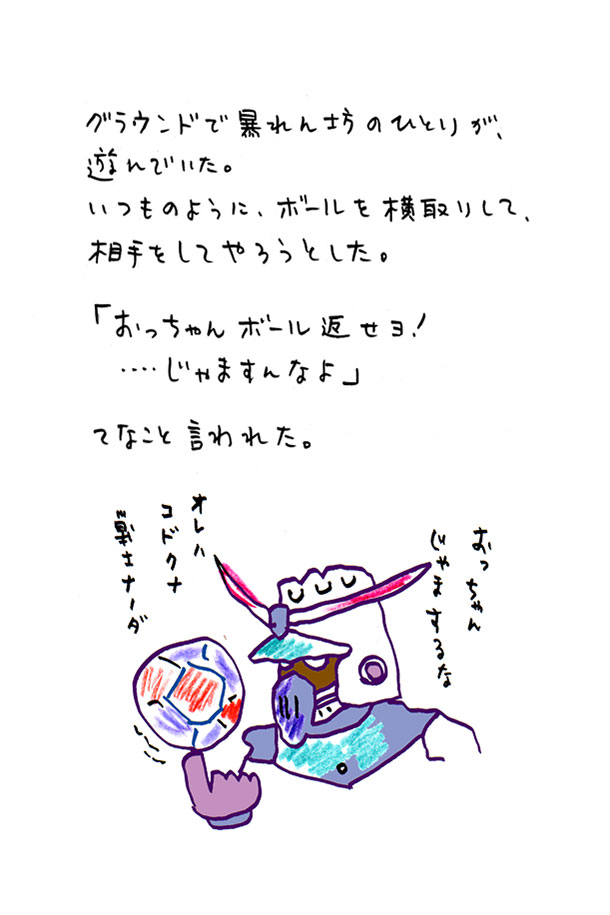 グラウンドで暴れん坊のひとりが、
遊んでいた。
いつものように、ボールを横取りして、
相手をしてやろうとした。
「おっちゃんボール返せヨ!
‥‥じゃますんなよ」
てなこと言われた。
おっちゃん
じゃまするな
オレハ
コドクナ
戦士ナノダ